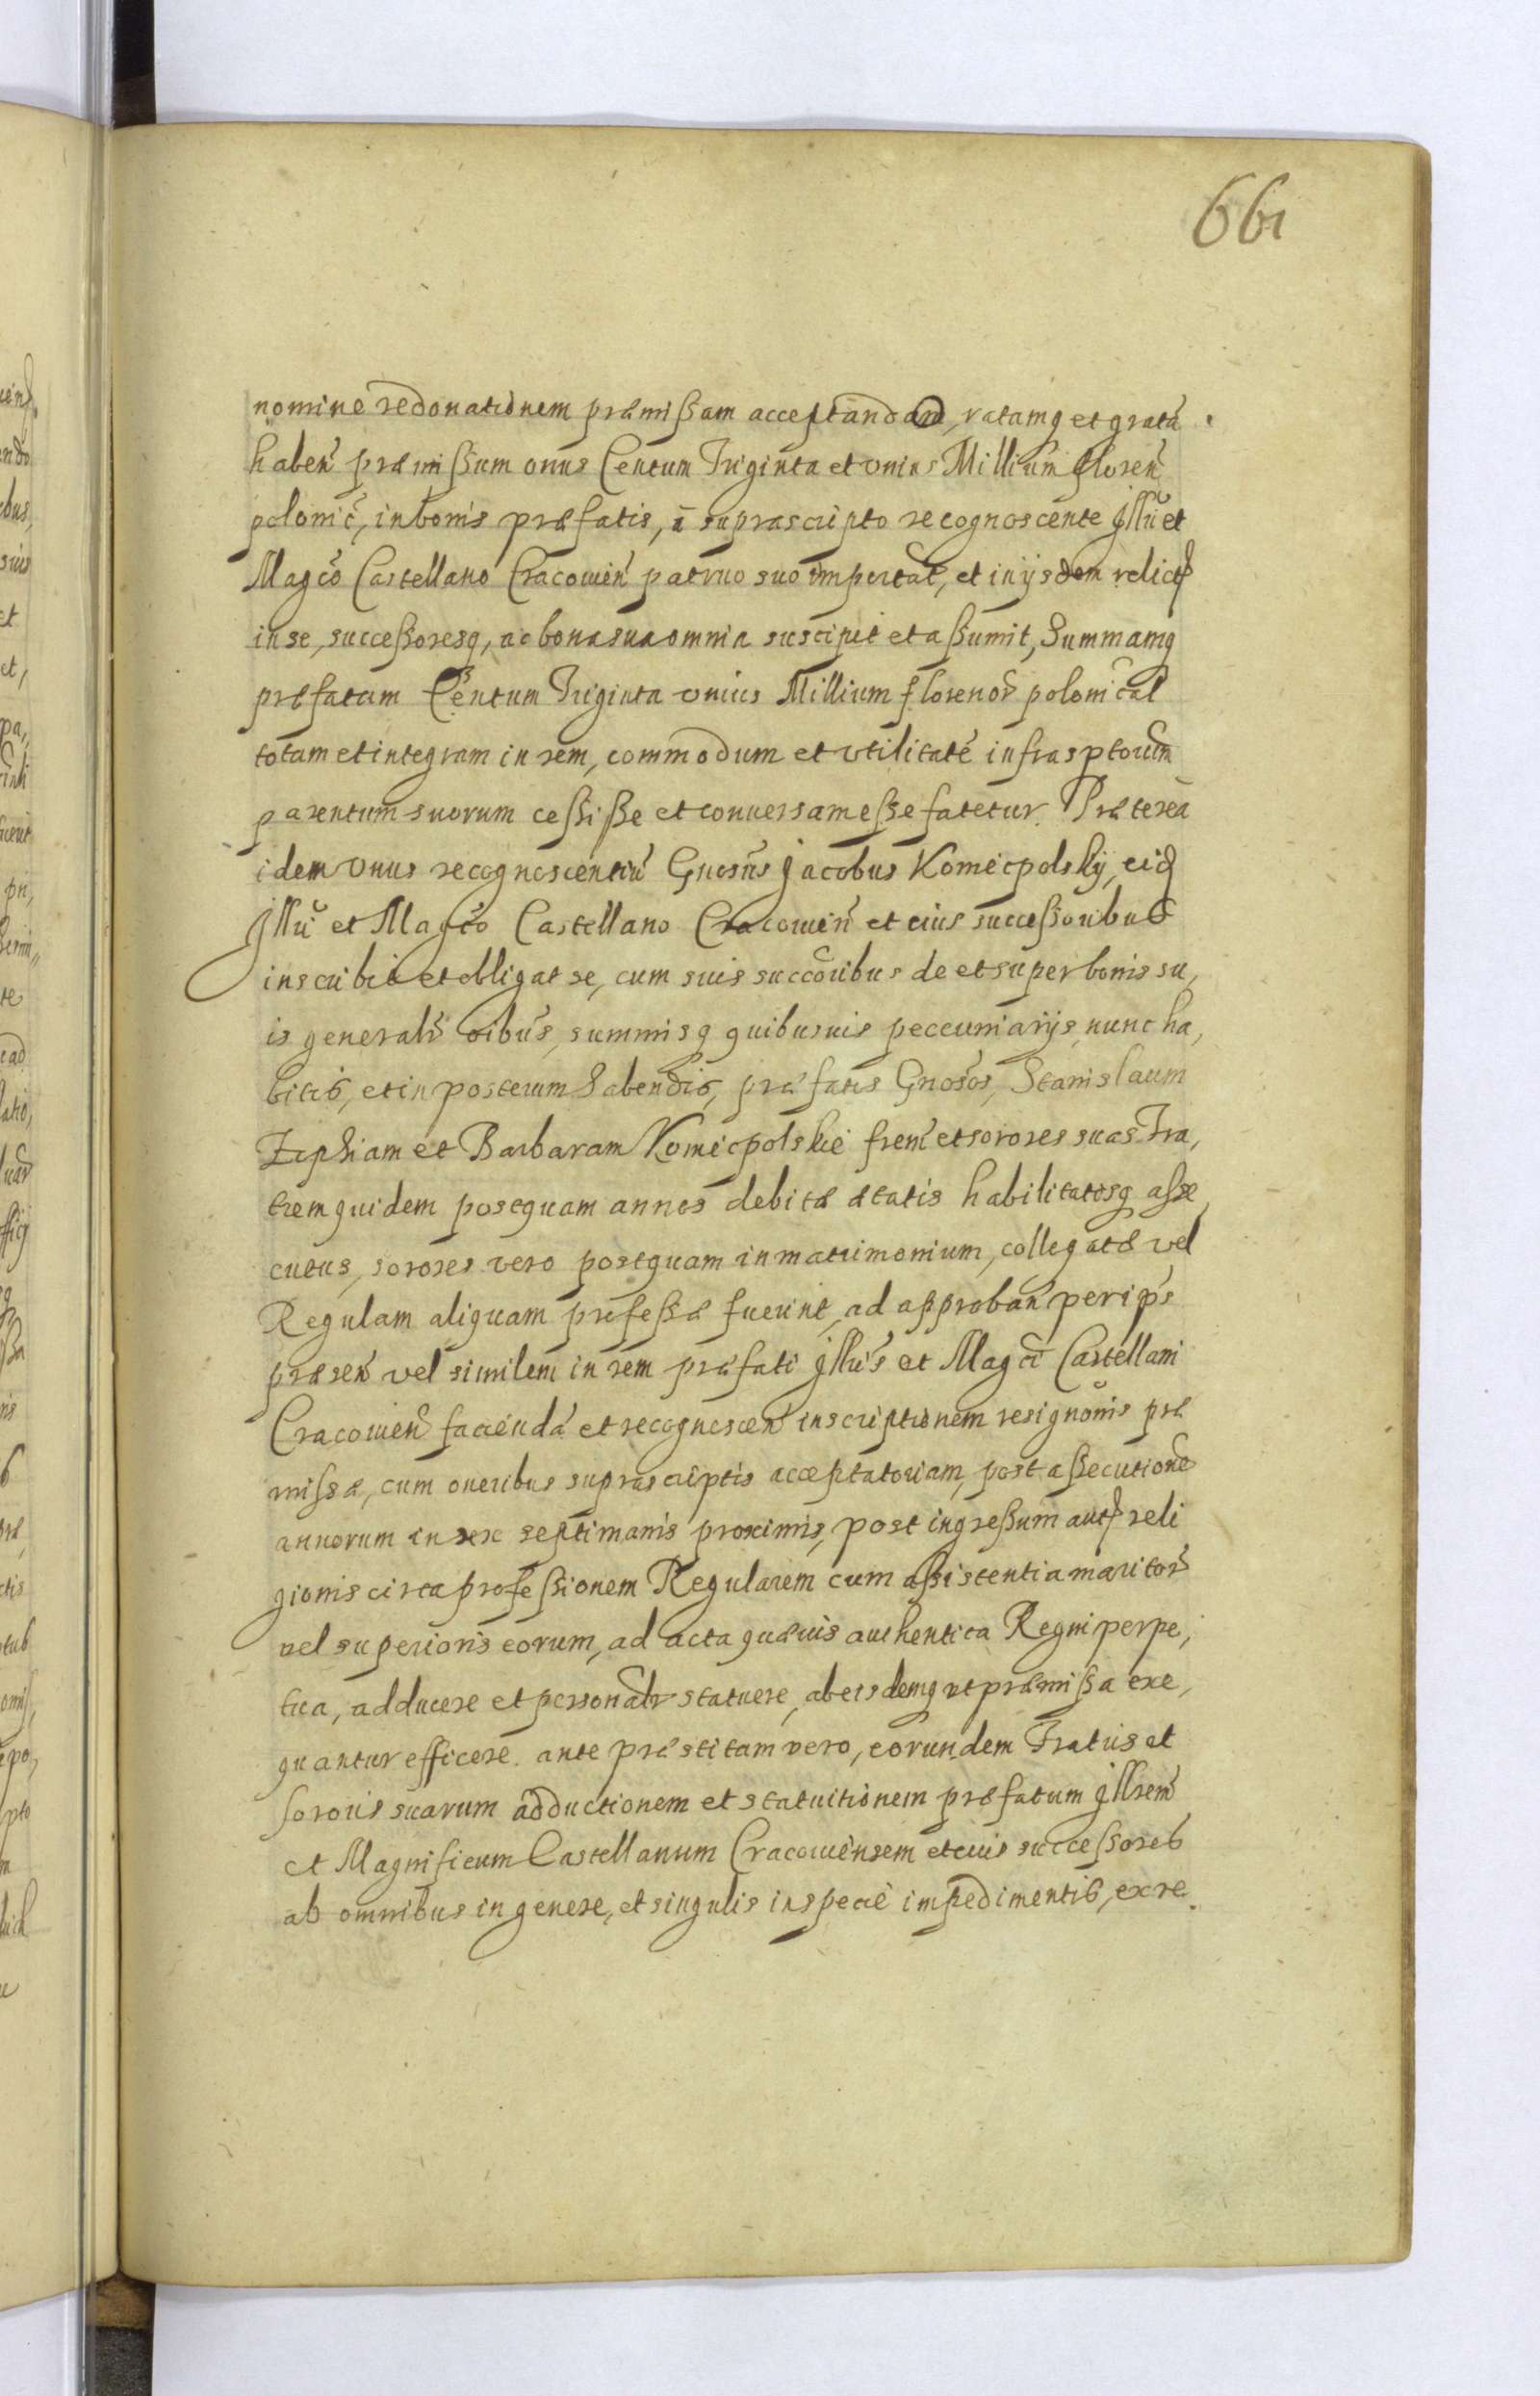 661
nomine redonationem præmißam acceptandam, ratamq et gratã
haben̄ præmißum onus Centum Triginta et vnius Millium floren̄
polonic̄, in bonis præfatis, ā suprascripto recognoscente Jllr̄i et
Magc̄o Castellano Cracouien̄ patruo suo impertat̄, et in ijsdem relict
in se, succeßoresq, ac bona sua omnia suscipit et aßumit, Summamq
præfatam Centum Triginta vnius Millium florenor̄ polonical
totam et integram in rem, commodum et vtilitatē infrasptorum
parentum suorum ceßiße et conuersam eße fatetur. Præterea
idem vnus recognoscentiū Gnos̄us Jacobus Koniecpolsky, eid
Jllr̄i et Magc̄o Castellano Cracouien̄ et eius succeßoribus
inscribit et obligat se, cum suis succōribus de et super bonis su,
is generalr̄ oībus, summisq quibusuis peccuniarijs, nunc ha,
bitis, et in posterum habendis, præfatis Gnosos, Stanislaum
Zophiam et Barbaram Koniecpolskie frem̄ et sorores suas Fra,
trem quidem postquam annos debitæ ætatis habilitatisq aße
cutus, sorores vero postquam in matrimonium, collegatæ vel
Regulam aliquam profeßæ fuerint, ad approban̄ per ip̄s
præsen̄ vel similem in rem præfati Jllris̄ et Magc̄i Castellani
Cracouien̄ faciendā et recognoscen̄ inscriptionem resignōnis præ
mißæ, cum oneribus suprascriptis acceptatoriam, post aßecutionē
annorum in sex septimanis proximis, post ingreßum aut reli
gionis circa profeßionem Regularem cum aßistentia maritor̄
vel superioris eorum, ad acta quæuis authentica Regni perpe,
tua, adducere et personalr̄ statuere, ab eisdemq vt præmißa exe,
quantur efficere. ante præstitam vero, eorundem Fratris et
sororis suarum adductionem et statuitionem præfatum Jllrem̄
et Magnificum Castellanum Cracouiensem et eius succeßores
ab omnibus in genere, et singulis in specie impedimentis, ex re